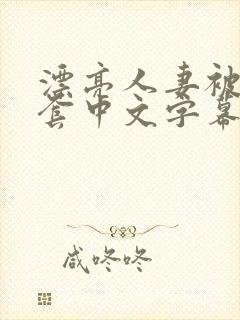 漂亮人妻被
套中文字幕
咸咚咚